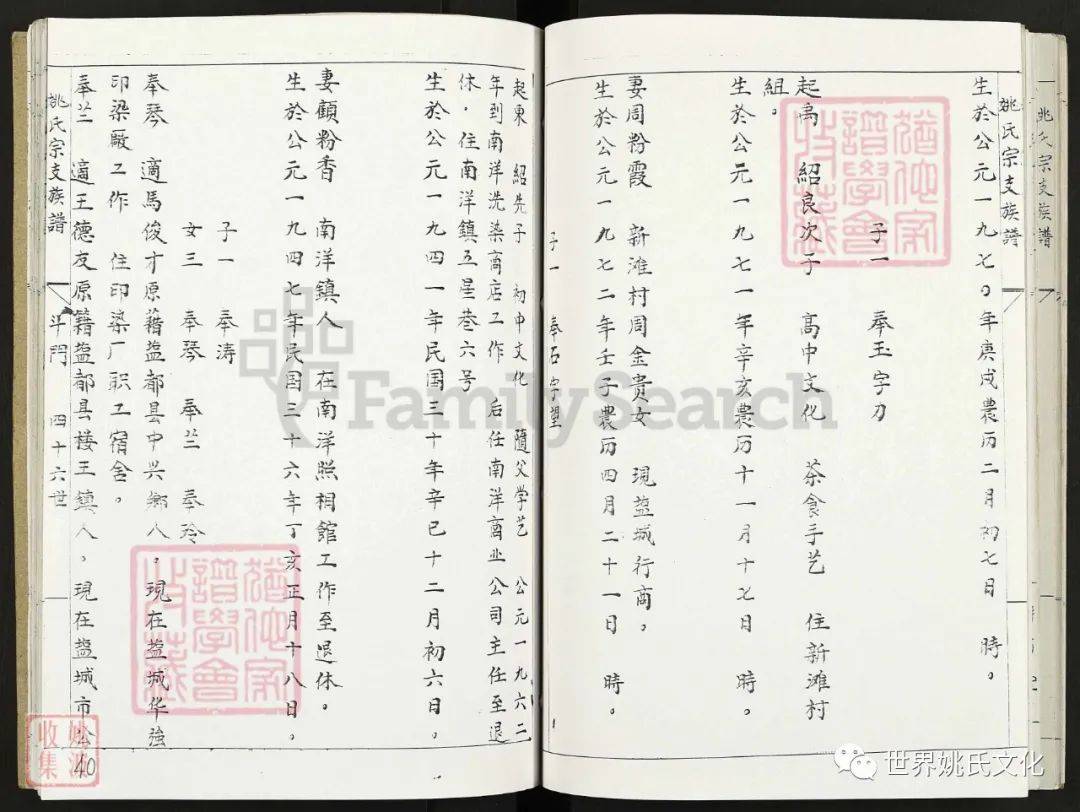 姚氏宗支族譜
姚氏宗支族譜
生於公元一九七〇年庚戌農历二月初七日 時。
子一 奉玉字刀
起禹 紹良次子 高中文化 茶食手艺 住新滩村
組。
生於公元一九七一年辛亥農历十一月十七日 時。
妻周粉霞 新滩村周金贵女 現盐城行商。
生於公元一九七二年壬子農历四月二十一日 時。
子一 奉石字望
起東 紹先子 初中文化 隨父学艺 公元一九六二
年到南洋洗染商店工作 后任南洋商业公司主任至退
休。住南洋鎮五星巷六号
生於公元一九四一年民国三十年辛巳十二月初六日。
妻顧粉香 南洋鎮人 在南洋照相館工作至退休。
生於公元一九四七年民国三十六年丁亥正月十八日。
子一 奉涛
女三 奉琴 奉兰 奉玲
奉琴 適馬俊才原藉盐都县中兴鄉人。現在盐城华強
印染廠工作 住印染厂职工宿舍。
奉兰 適王德友原籍盐都县楼王鎮人。現在盐城市公
姚氏宗支族譜 斗門 四十六世
40
收集
FamilySearch
世界姚氏文化